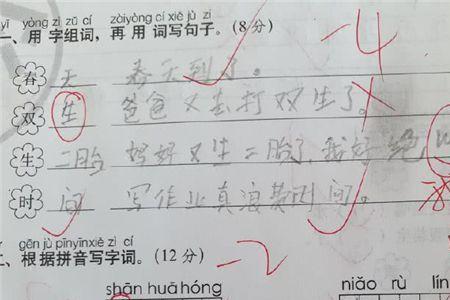 yī yòng zì zǔ cí zài yòng cí xiě jù zi
一、用字组词，再用词写句子。(8分) -4
春 天 春天到了。
双 生 爸爸又去打双生了。
生 二胎 妈妈又生二胎了,我好绝
时 间 写作业真浪费时间。
gēn jù pīnyīn xiě zì cí
二、根据拼音写字词。(12分) -2
shān huā hóng niǎo rù lín